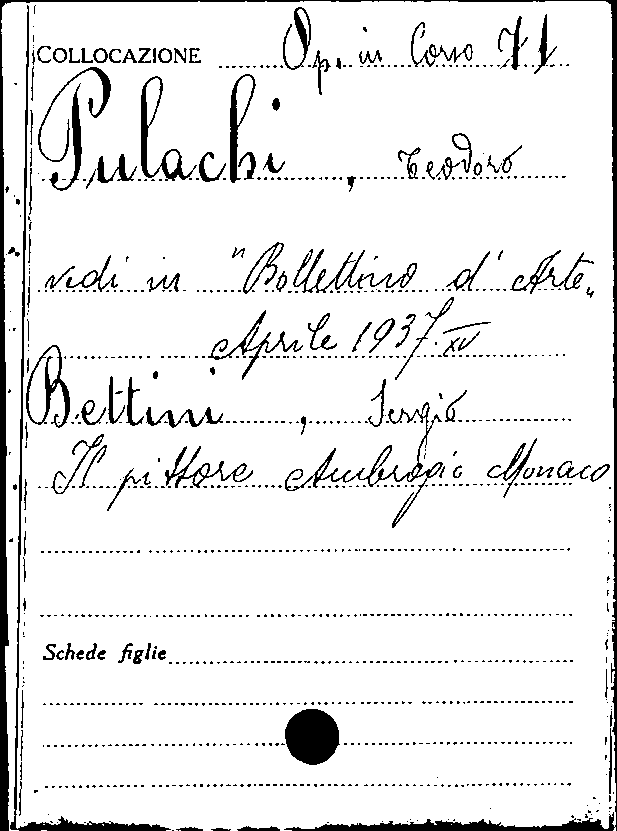 COLLOCAZIONE Op. in Corso 71
Pulachi, Teodoro
vedi in "Bollettino d'Arte„
Aprile 1937.XV
Bettini, Sergio
Il pittore Ambrogio Monaco
Schede figlie